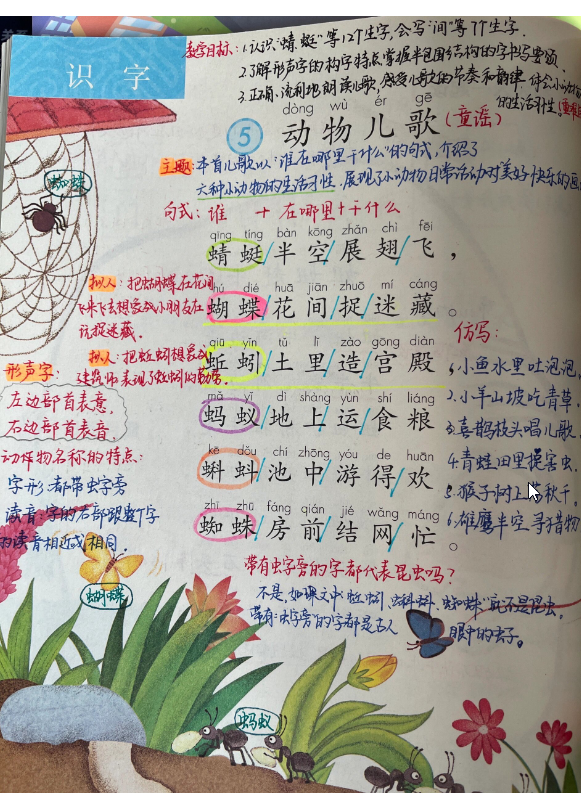 教学目标：1.认识"蜻、蜓"等12个生字，会写"间"等7个生字.
2.了解形声字的构字特点，掌握半包围结构的字书写要领.
3.正确、流利地朗读儿歌，感受儿歌的节奏和韵律，体会小动物
的生活习性。
识字
dòng wù ér gē
5 动物儿歌（童谣）
主题：本首儿歌以："谁在哪里干什么"的句式，介绍了
六种小动物的生活习性，展现了小动物日常活动时美好快乐的画
句式：谁 + 在哪里 + 干什么
蜘蛛
qīng tíng bàn kōng zhǎn chì fēi
蜻蜓/半空/展翅/飞，
hú dié huā jiān zhuō mí cáng
蝴蝶/花间/捉迷藏。
拟人：把蝴蝶在花间
飞来飞去想象成小朋友在
玩捉迷藏.
qiū yǐn tǔ lǐ zào gōng diàn
蚯蚓/土里/造/宫殿
拟人：把蚯蚓想象成
建筑师表现了蚯蚓的勤劳.
mǎ yǐ dì shàng yùn shí liáng
蚂蚁/地上/运/食粮
kē dǒu chí zhōng yóu de huān
蝌蚪/池中/游得/欢
zhī zhū fáng qián jié wǎng máng
蜘蛛/房前/结网/忙。
形声字：
左边部首表意，
右边部首表音.
动物名称的特点：
字形：都带虫字旁
读音：字的右部跟整个字
的读音相近或相同.
仿写：
1.小鱼水里吐泡泡，
2.小羊山坡吃青草.
3.喜鹊枝头唱儿歌
4.青蛙田里捉害虫.
5.猴子树上荡秋千.
6.雄鹰半空寻猎物
带有虫字旁的字都代表昆虫吗？
不是，如课文中"蚯蚓、蝌蚪、蜘蛛"就不是昆虫，
带有"虫字旁"的字都是古人眼中的虫子。
蝴蝶
蚂蚁